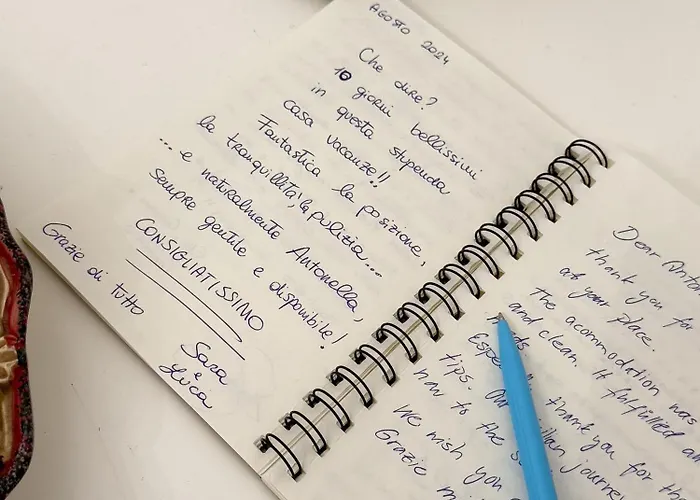 AGOSTO 2024
Che dire?
10 giorni bellissimi
in questa stupenda
casa vacanze!!
Fantastica la posizione,
la tranquillità, la pulizia...
... e naturalmente Antonella,
sempre gentile e disponibile!
CONSIGLIATISSIMO
Grazie di tutto
Sara
e
Luca
Dear
thank you for
at your place.
The acommodation was
and clean. It fulfilled
tips. thank you for the
how to the journey
We wish you
Grazie